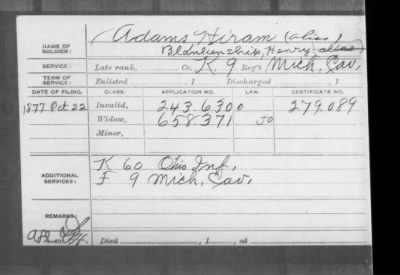 Adams Hiram (alias)
NAME OF SOLDIER: Blankenship, Henry alias
SERVICE: Late rank, Co. K, 9 Reg't Mich. Cav.
TERM OF SERVICE: Enlisted , 1 Discharged , 1
DATE OF FILING. CLASS. APPLICATION NO. LAW. CERTIFICATE NO.
1877 Oct 22 Invalid, 243,630 279.089
Widow, 658371
Minor,
ADDITIONAL SERVICES: K 60 Ohio Inf.
F 9 Mich. Cav.
REMARKS:
Died , 1 , at